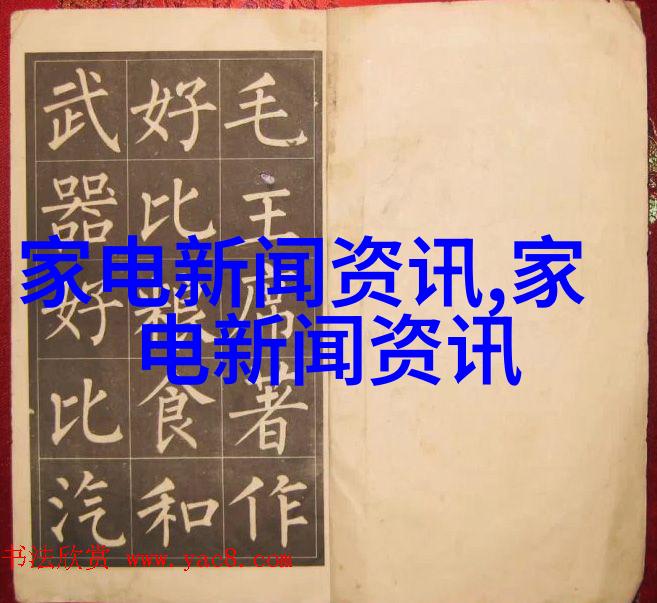 毛主席著作
好比粮食和
武器好比汽
家电新闻资讯,家
电新闻资讯
书法欣赏 www.yac8.com